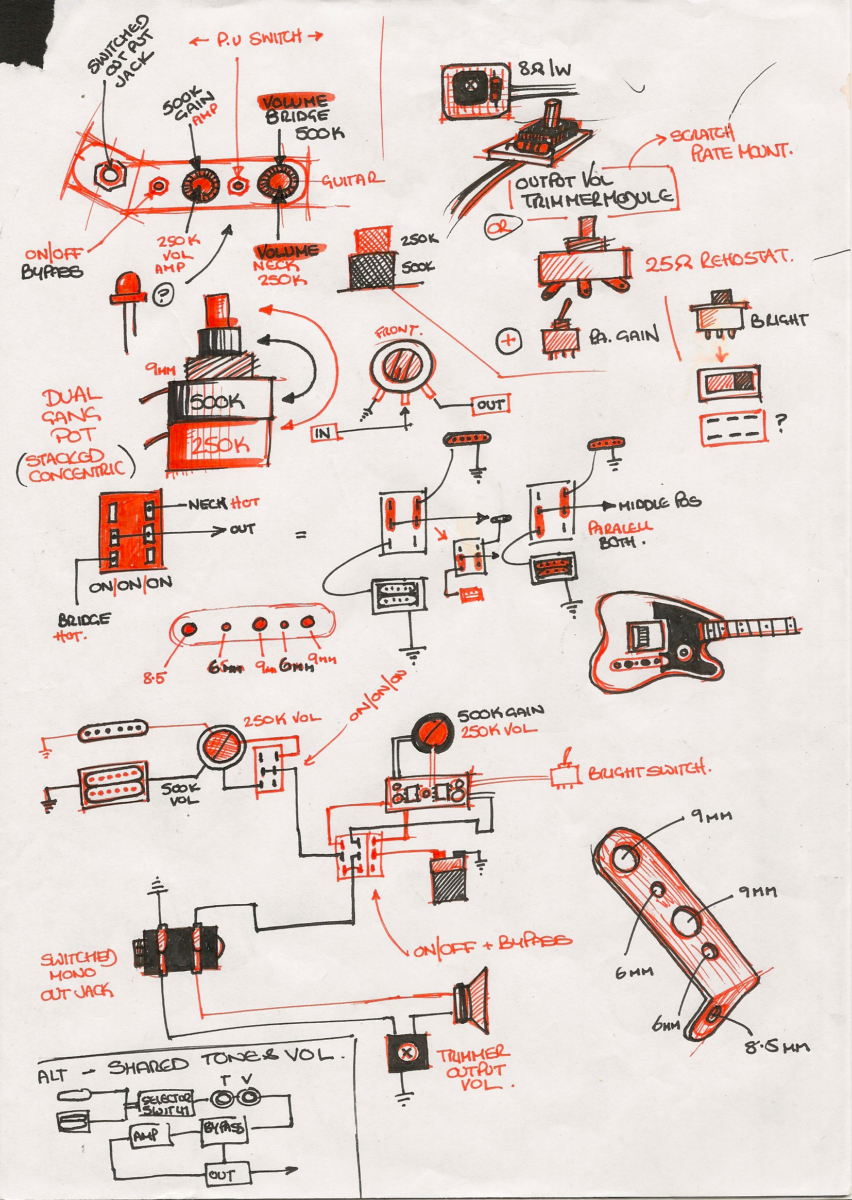 SWITCHED
OUTPUT
JACK
← P.U SWITCH →
500K
GAIN
AMP
VOLUME
BRIDGE
500K
GUITAR
ON/OFF
BYPASS
250K
VOL
AMP
VOLUME
NECK
250K
?
250K
500K
8Ω/W
SCRATCH
PLATE MOUNT.
OUTPUT VOL
TRIMMER MODULE
OR
25Ω REHOSTAT.
+
PA. GAIN
BRIGHT
?
9MM
DUAL
GANG
POT
(STACKED
CONCENTRIC)
500K
250K
FRONT.
IN
OUT
NECK HOT
OUT
ON/ON/ON
BRIDGE
HOT.
=
MIDDLE POS
PARALELL
BOTH.
8.5
6.5MM
9MM
6MM
9MM
250K VOL
ON/ON/ON
500K
VOL
500K GAIN
250K VOL
BRIGHT SWITCH.
ON/OFF + BYPASS
SWITCHED
MONO
OUT JACK
TRIMMER
OUTPUT
VOL.
9MM
9MM
6MM
6MM
8.5MM
ALT - SHARED TONE & VOL.
T V
SELECTOR
SWITCH
AMP
BYPASS
OUT